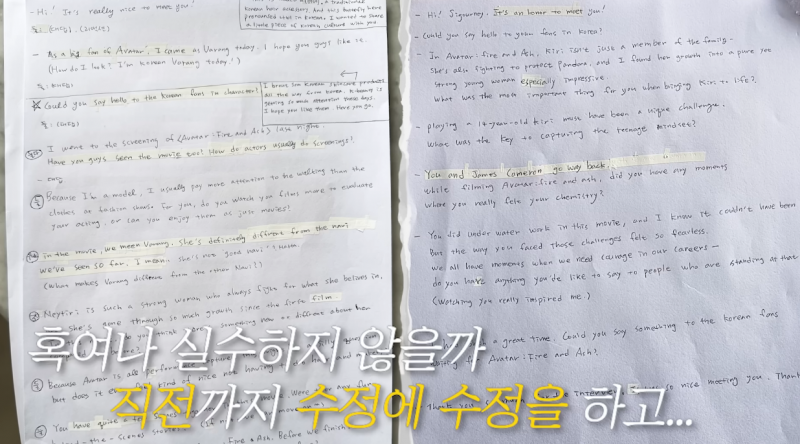 - Hi! It's really nice to meet you!
Korean hair accessory. And this beautify were
pronounced cool in Korean. I wanted to share
a little piece of Korean culture with you
- As a big fan of Avatar, I came as Varang today. I hope you guys like it.
(How do I look? I'm Korean Varang today!)
Could you say hello to the Korean fans in character!
all the way from Korea. K-beauty is
gaining so much attention these days.
I hope you like them. Here you go.
I went to the screening of <Avatar: Fire and Ash> last night.
Have you guys seen the movie yet? How do actors usually do screenings?
Because I'm a model, I usually pay more attention to the walking than the
clothes at fashion shows. For you, do you watch films more to evaluate
your acting, or can you enjoy them as just movies?
in the movie, we meet Varang. She's definitely different from the navi
we've seen so far. I mean, she's not good navi?
(What makes Varang different from the other Navi?)
Neytiri is such a strong woman who always fight for what she believes in.
She's gone through so much growth since the first film.
something new or different about her
Because Avatar is all performance capture
but does it ever kind of nice not having
You have quite a few
behind-the-scenes
Fire & Ash. Before we finish
- Hi! Sigourney. It's an honor to meet you!
- Could you say hello to your fans in Korea?
- In Avatar: Fire and Ash, Kiri isn't just a member of the family -
She's also fighting to protect Pandora, and I found her growth into a pure yet
strong young woman especially impressive.
What was the most important thing for you when bringing Kiri to life?
- playing a 14-year-old Kiri must have been a unique challenge.
What was the key to capturing the teenage mindset?
- You and James Cameron go way back.
while filming Avatar: Fire and Ash, did you have any moments
where you really felt your chemistry?
- You did under water work in this movie, and I know it couldn't have been
But the way you faced those challenges felt so fearless.
we all have moments when we need courage in our careers -
do you have anything you'd like to say to people who are standing at that
(Watching you really inspired me.)
a great time. Could you say something to the Korean fans
waiting for Avatar: Fire and Ash?
Thank you so much for the interview. It was so nice meeting you. Thank
혹여나 실수하지 않을까
직전까지 수정에 수정을 하고...